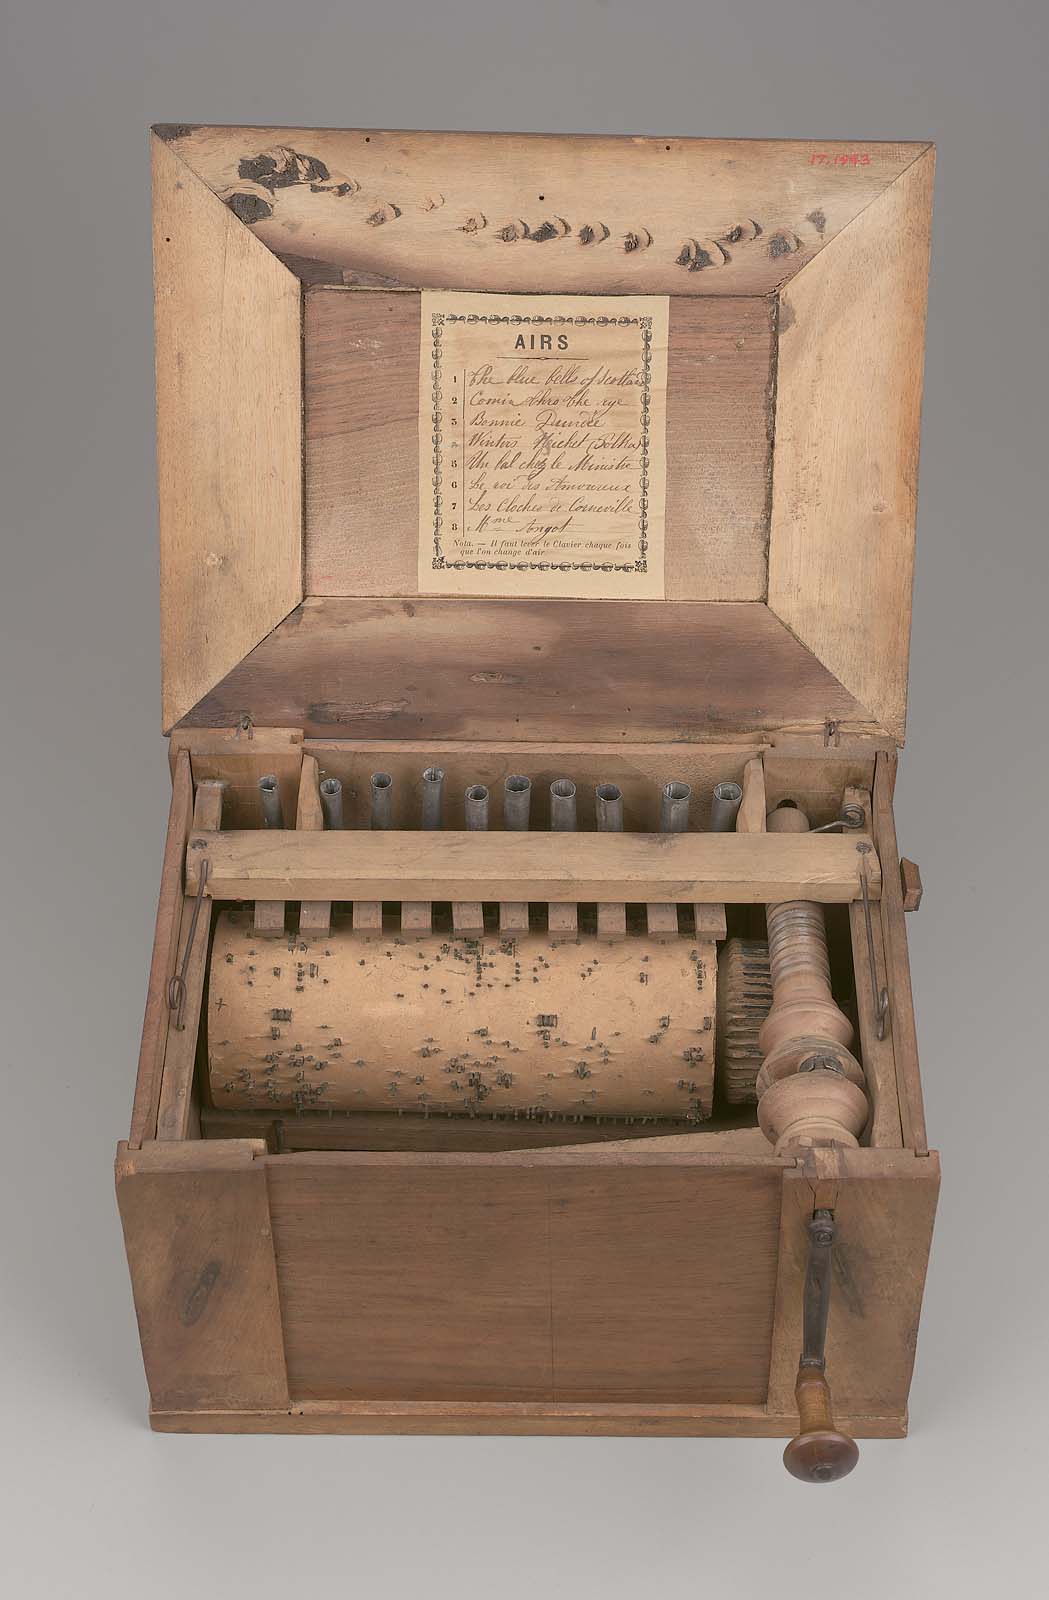 17.1943
AIRS
1 The blue bells of Scotland
2 Comin thro the rye
3 Bonnie Dundee
Winters (Polka)
5 Un bal chez le Ministre
6 Le roi des Amoureux
7 Les Cloches de Corneville
8 Mme Angot
Nota. — Il faut lever le Clavier chaque fois
que l'on change d'air.